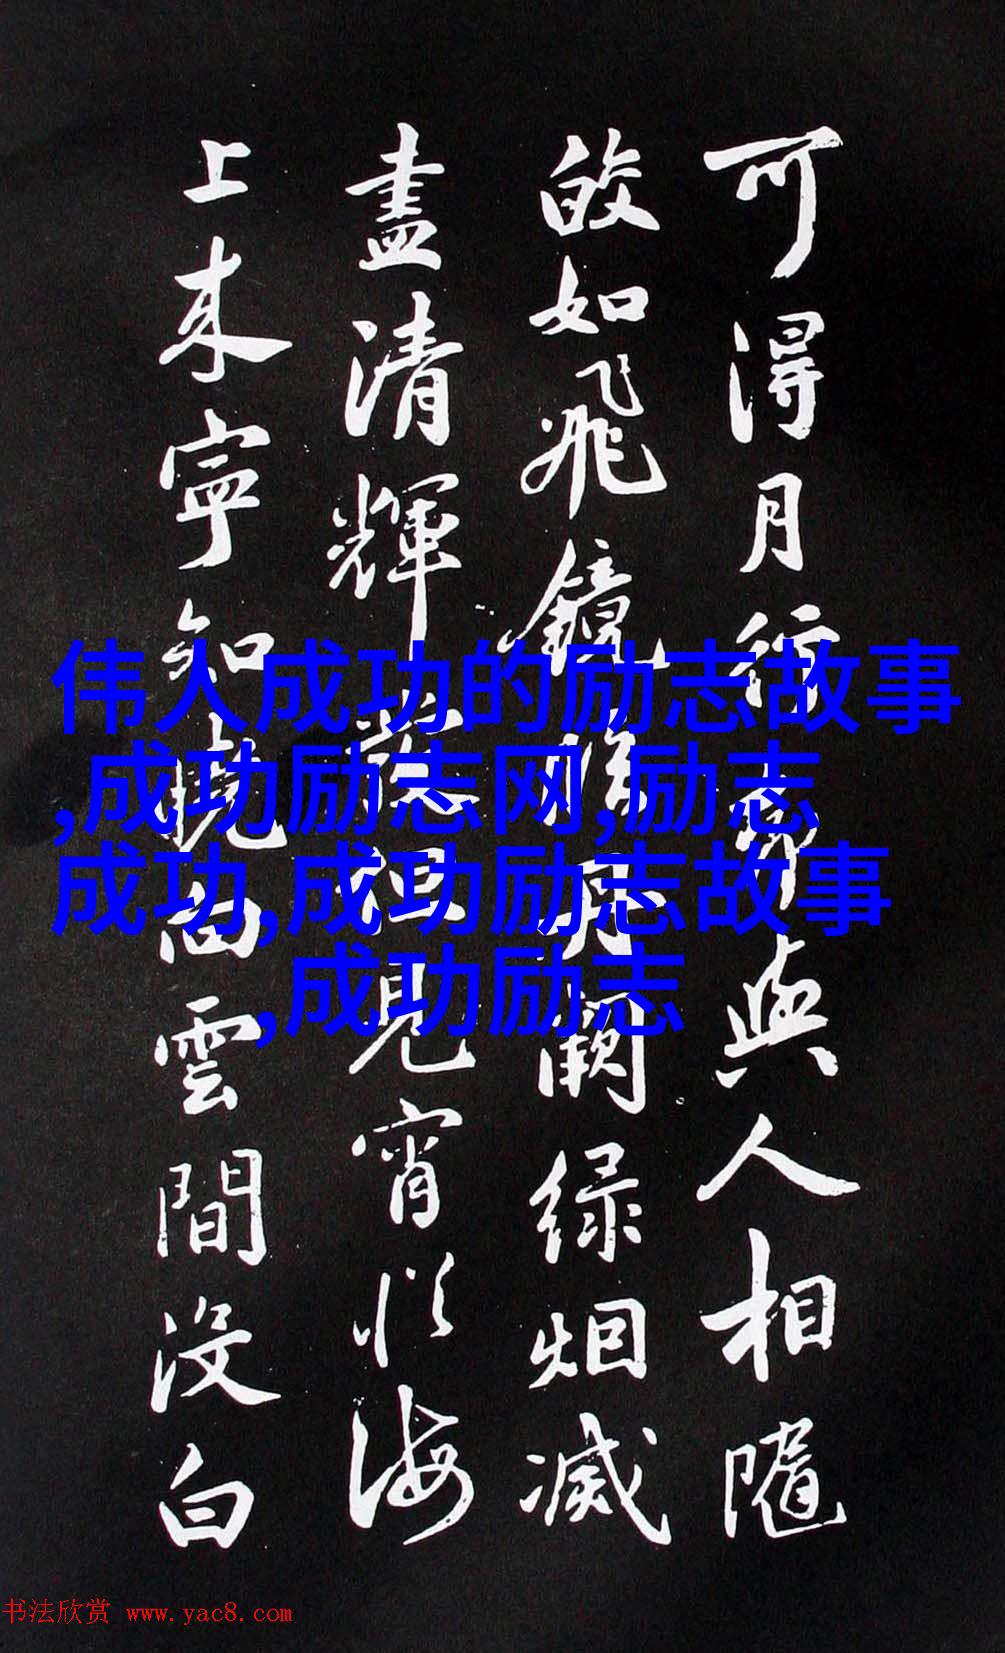 可得月行却與人相隨
皎如飛鏡臨丹闕緑烟滅
盡清輝發但見宵從海
上來寧知曉向雲間没白
伟人成功的励志故事
,成功励志网,励志
成功,成功励志故事
,成功励志
书法欣赏 www.yac8.com